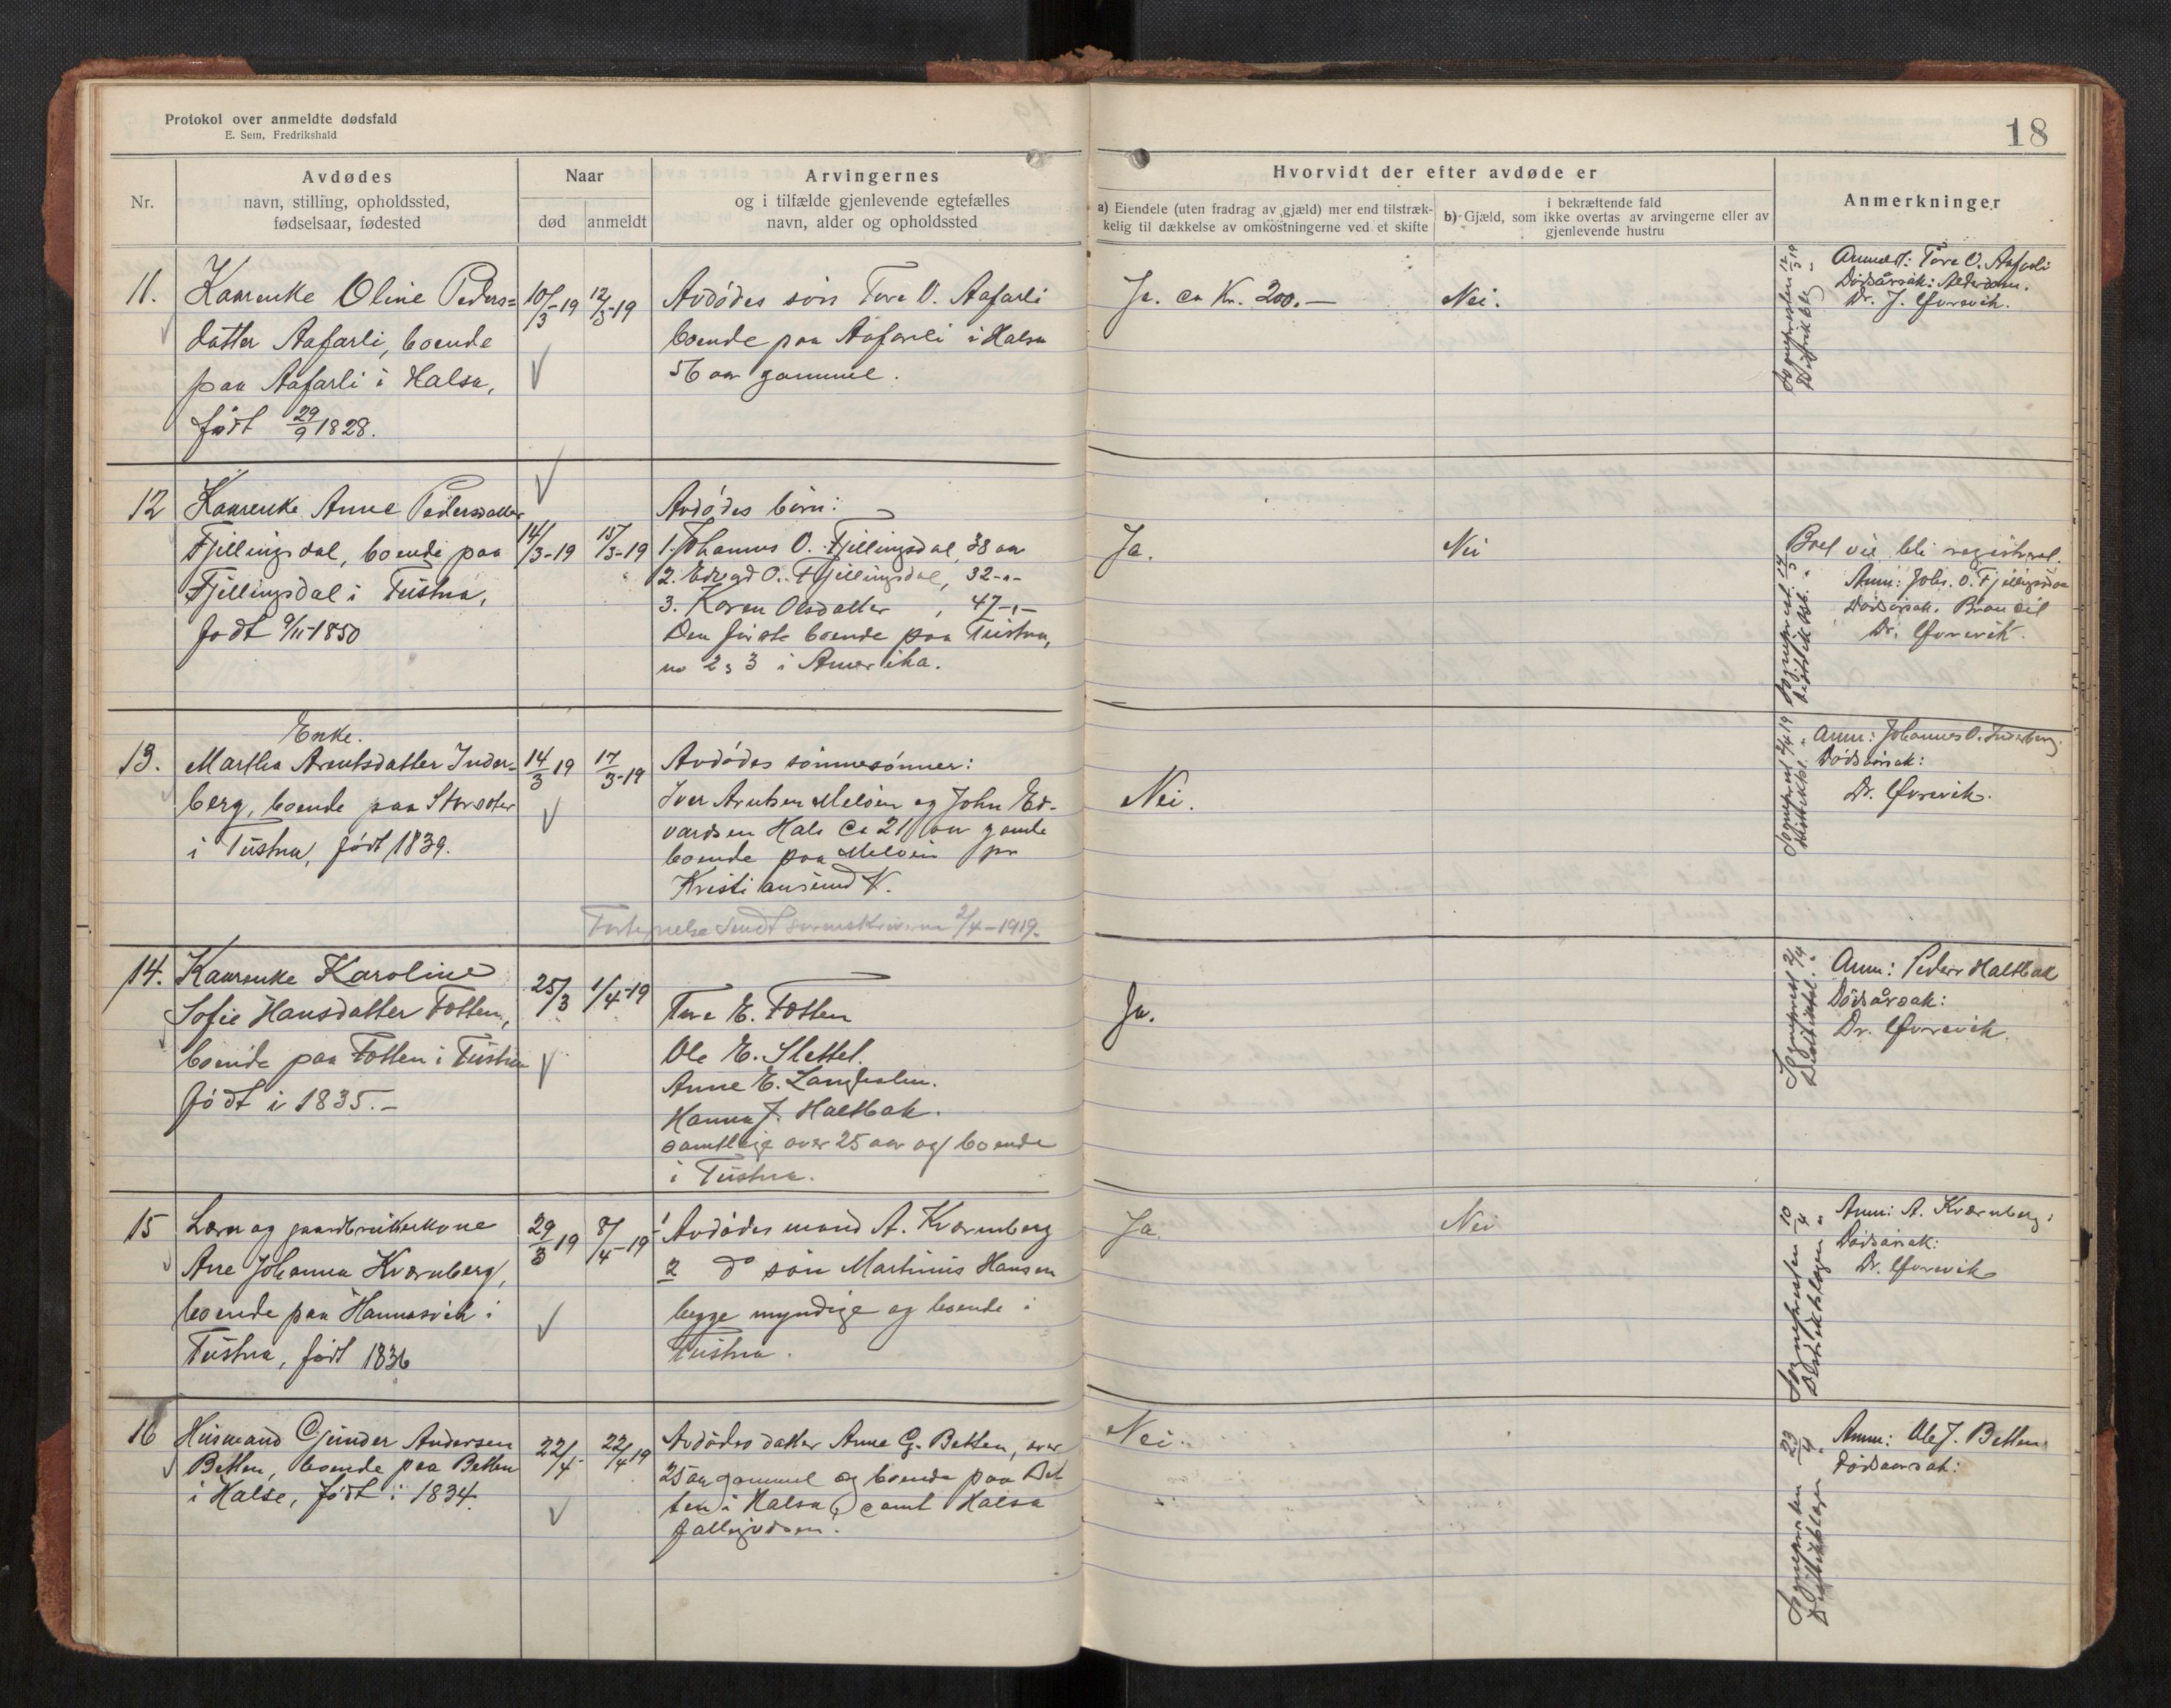 Protokol over anmeldte dødsfald
E. Sem, Fredrikshald
18
Nr.
Avdødes
navn, stilling, opholdssted,
fødselsaar, fødested
Naar
død
anmeldt
Arvingernes
og i tilfælde gjenlevende egtefælles
navn, alder og opholdssted
Hvorvidt der efter avdøde er
a) Eiendele (uten fradrag av gjæld) mer end tilstræk-
kelig til dækkelse av omkostningerne ved et skifte
i bekræftende fald
b) Gjæld, som ikke overtas av arvingerne eller av
gjenlevende hustru
Anmerkninger
11.
Kaarenke Oline Peders=
datter Aafarli, boende
paa Aafarli i Halsa,
født 29/9 1828.
10/3-19
12/3-19
Avdødes søn Tore O. Aafarli
boende paa Aafarli i Halsa
56 aar gammel.
Ja. ca Kr. 200.—
Nei.
Sognepresten 12/3 19
Distriktslg "
Anmeldt: Tore O. Aafarli
Dødsårsak: Alderdom.
Dr. J. Øvrevik.
12
Kaarenke Anne Pedersdatter
Fjellingsdal, boende paa
Fjellingsdal i Tustna,
født 9/11-1850
14/3-19
15/3-19
Avdødes børn:
1. Johannes O. Fjellingsdal, 38 aar
2. Edvard O. Fjellingsdal, 32-"-
3. Karen Olsdatter , 47-"-
Den første boende paa Tustna,
no 2, 3 i Amerika.
Ja.
Nei
Sogneprest 17/3
Boet vil bli registreret.
Anm: Johs. O. Fjellingsdal
Dødsårsak.
Dr. Øvrevik.
13.
Enke.
Martha Arntsdatter Inder-
berg, boende paa Storoter
i Tustna, født 1839.
14/3 19
17/3-19
Avdødes sønnesønner:
Iver Arntsen Meløen og John Ed-
vardsen Hals ca 21 aar gamle
boende paa Meløen pr
Kristiansund N.
Fortegnelse sendt sorenskriveren 2/4-1919.
Nei.
Sogneprest 2/4 19
Anm: Johannes O. Inderberg.
Dødsårsak:
Dr. Øvrevik.
14.
Kaarenke Karoline
Sofie Hansdatter Fotten,
boende paa Fotten i Tustna
født i 1835.-
25/3
1/4-19
Tore E. Fotten
Ole E. Slettet.
Anne E. Langholm.
Hanna J. Haltbak.
samtlige over 25 aar og boende
i Tustna.
Ja.
Sogneprest 2/4
Anm: Peder Haltbak
Dødsårsak:
Dr. Øvrevik.
15
Lærer og gaardbrukerkone
Ane Johanna Kværnberg,
boende paa Hannasvik i
Tustna, født 1836
29/3 19
8/4-19
1 Avdødes mand A. Kværnberg
2 do søn Martinus Hansen
begge myndige og boende i
Tustna.
Ja.
Nei
Sognepresten 10/4
Distriktslægen "
Anm: A. Kværnberg.
Dødsårsak:
Dr. Øvrevik
16
Husmand Gunder Andersen
Betten, boende paa Betten
i Halse, født i 1834.
22/4-
22/4 19
Avdødes datter Anne G. Betten, over
25 aar gammel og boende paa Bet
ten i Halsa, samt Halsa
fattigvæsen.
Nei.
Sognepresten 23/4
Distriktslægen "
Anm: Ole J. Betten
Dødsaarsak: